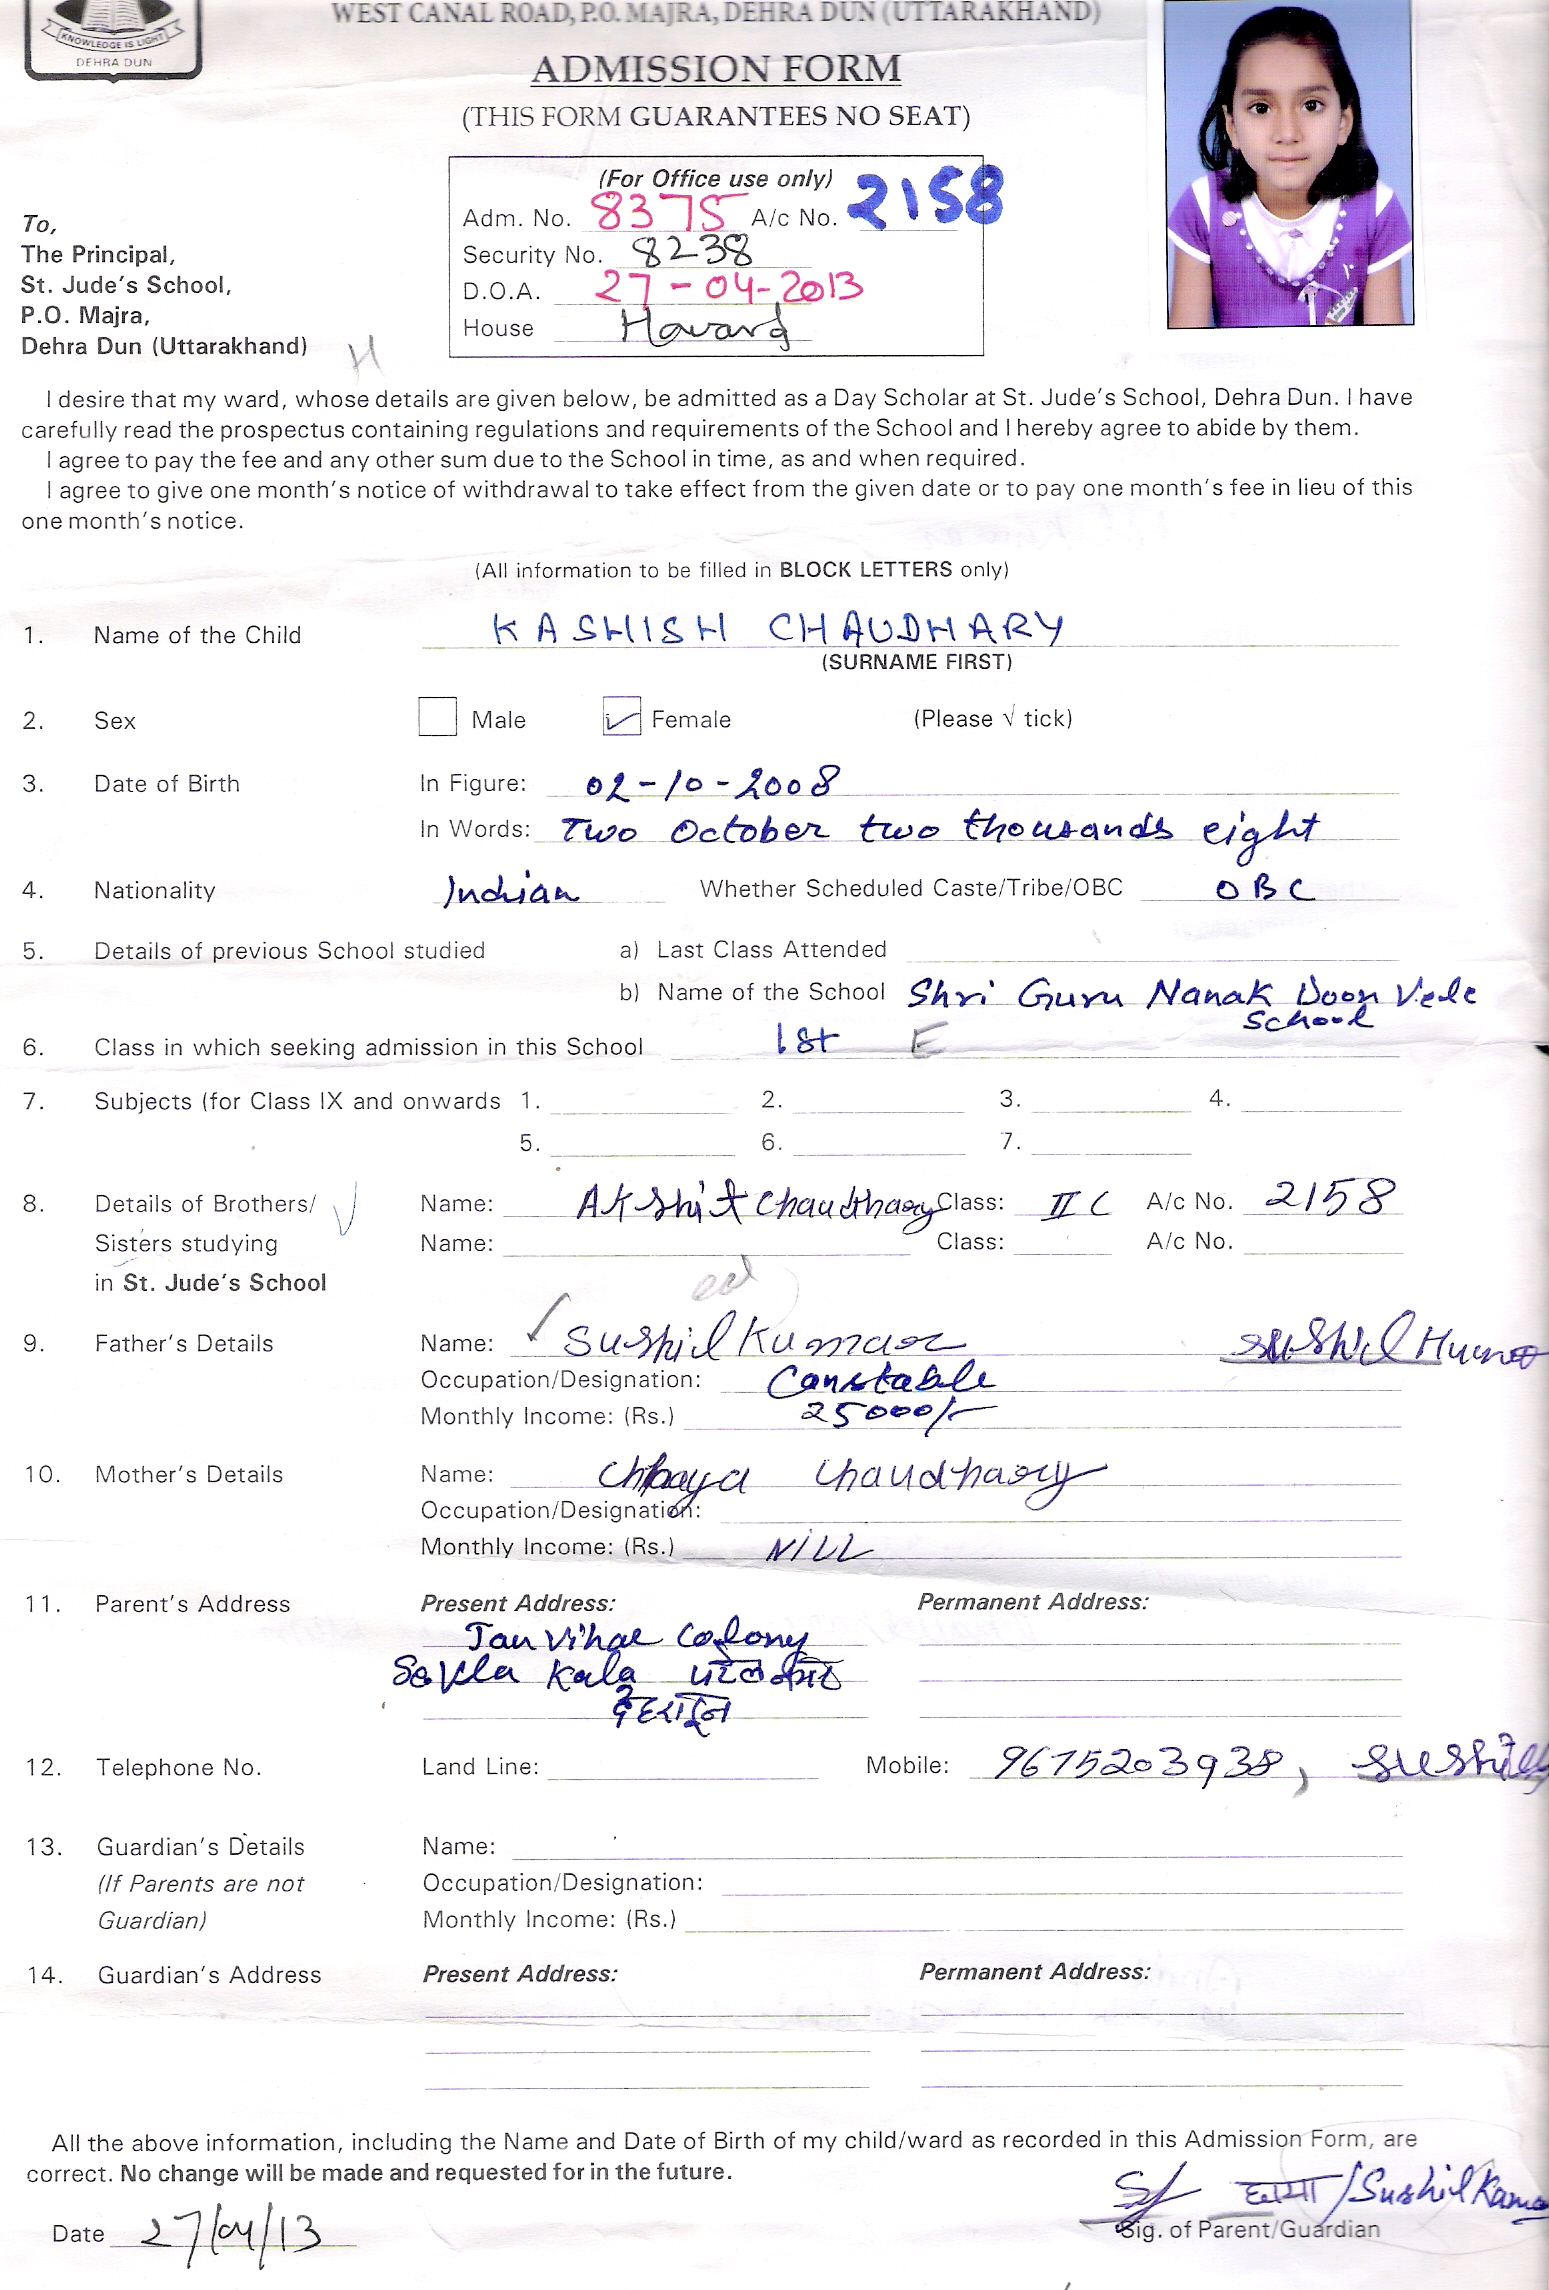 WEST CANAL ROAD, P.O. MAJRA, DEHRA DUN (UTTARAKHAND)
KNOWLEDGE IS LIGHT
DEHRA DUN
ADMISSION FORM
(THIS FORM GUARANTEES NO SEAT)
(For Office use only)
Adm. No. 8375 A/c No. 2158
Security No. 8238
D.O.A. 27-04-2013
House Howard
To,
The Principal,
St. Jude's School,
P.O. Majra,
Dehra Dun (Uttarakhand) H
I desire that my ward, whose details are given below, be admitted as a Day Scholar at St. Jude's School, Dehra Dun. I have
carefully read the prospectus containing regulations and requirements of the School and I hereby agree to abide by them.
I agree to pay the fee and any other sum due to the School in time, as and when required.
I agree to give one month's notice of withdrawal to take effect from the given date or to pay one month's fee in lieu of this
one month's notice.
(All information to be filled in BLOCK LETTERS only)
1. Name of the Child KASHISH CHAUDHARY
(SURNAME FIRST)
2. Sex Male Female (Please √ tick)
3. Date of Birth In Figure: 02-10-2008
In Words: Two October two thousands eight
4. Nationality Indian Whether Scheduled Caste/Tribe/OBC OBC
5. Details of previous School studied a) Last Class Attended
b) Name of the School Shri Guru Nanak Doon
School
6. Class in which seeking admission in this School 1st E
7. Subjects (for Class IX and onwards 1. 2. 3. 4.
5. 6. 7.
8. Details of Brothers/ Name: Akshit Chaudhary Class: II C A/c No. 2158
Sisters studying Name: Class: A/c No.
in St. Jude's School
9. Father's Details Name: Sushil Kumar Sushil
Occupation/Designation: Constable
Monthly Income: (Rs.) 25000/-
10. Mother's Details Name: Chhaya Chaudhary
Occupation/Designation:
Monthly Income: (Rs.) NILL
11. Parent's Address Present Address: Permanent Address:
Vihar Colony
Sevla Kala
देहरादून
12. Telephone No. Land Line: Mobile: 9675203938,
13. Guardian's Details Name:
(If Parents are not Occupation/Designation:
Guardian) Monthly Income: (Rs.)
14. Guardian's Address Present Address: Permanent Address:
All the above information, including the Name and Date of Birth of my child/ward as recorded in this Admission Form, are
correct. No change will be made and requested for in the future.
छाया/Sushil Kumar
Date 27/04/13 Sig. of Parent/Guardian